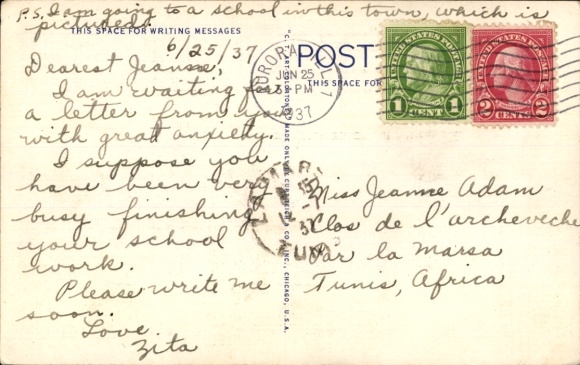 P.S. I am going to a school in this town, which is
pictured.
THIS SPACE FOR WRITING MESSAGES
6/25/37
Dearest Jeanne,
I am waiting for
a letter from you
with great anxiety.
I suppose you
have been very
busy finishing
your school
work.
Please write me
soon.
Love
Zita
POST
THIS SPACE FOR
AURORA, ILL.
JUN 25
PM
1937
UNITED STATES POSTAGE
1 CENT 1
UNITED STATES POSTAGE
2 CENTS 2
Miss Jeanne Adam
Clos de l'archeveche
Par la Marsa
Tunis, Africa